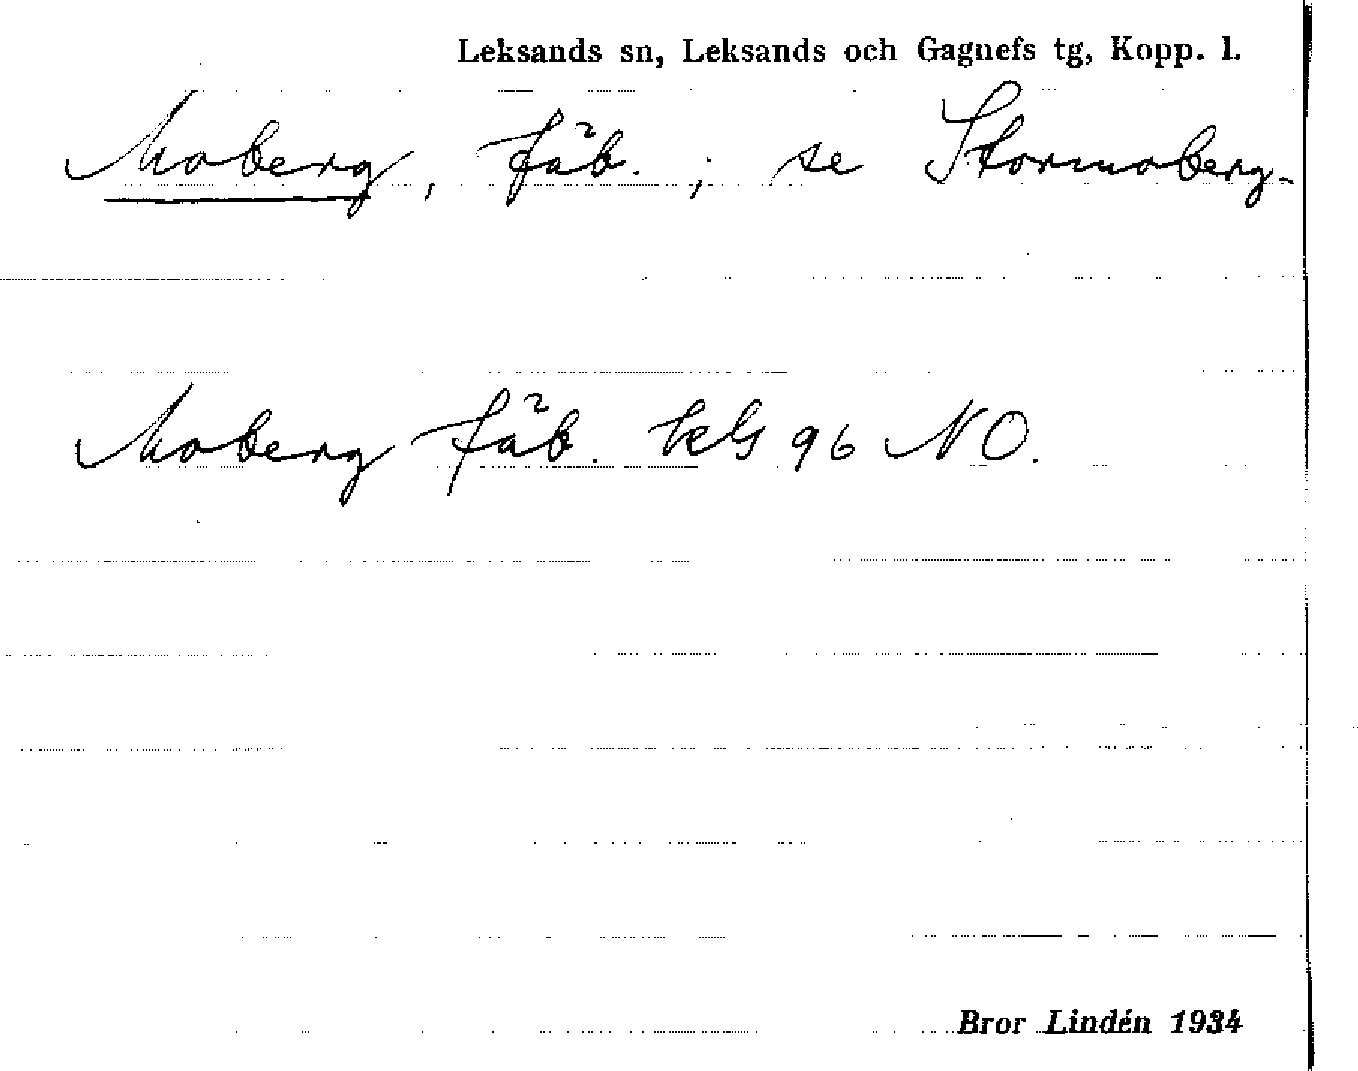 Leksands sn, Leksands och Gagnefs tg, Kopp. l.
Moberg, fäb. ; se Stormoberg.
Moberg fäb. kbl 96 NO.
Bror Lindén 1934